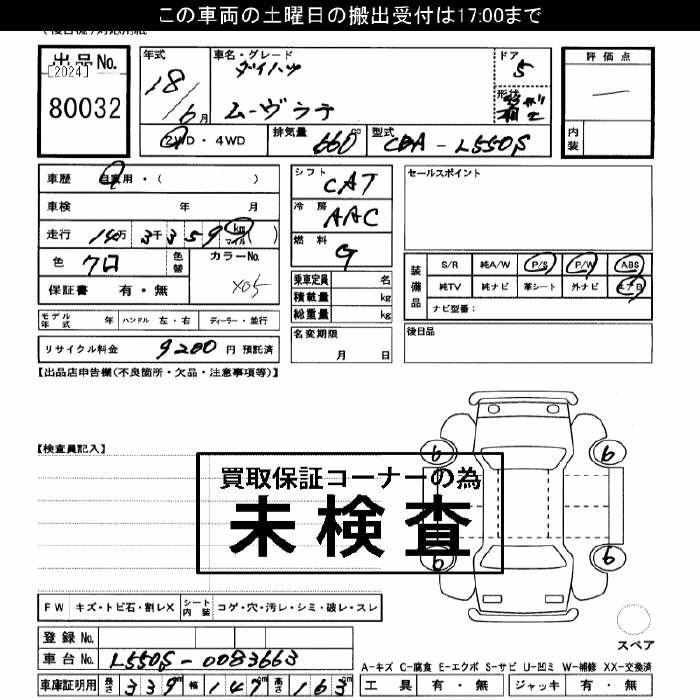 この車両の土曜日の搬出受付は17:00まで
出品No.
[2024]
80032
年式
18/6月
車名・グレード
ダイハツ
ムーヴラテ
ドア
5
形状
評価点
―
内装
2WD・4WD
排気量 660 cc
型式 CBA-L550S
車歴 自家用・( )
車検 年 月
走行 14万3千359 km マイル ( )
色 クロ 色替
カラーNo. X05
保証書 有・無
モデル年式 年 ハンドル 左・右 ディーラー・並行
リサイクル料金 9200 円 預託済
シフト CAT
冷房 AAC
燃料 G
乗車定員 名
積載量 kg
総重量 kg
名変期限
月 日
セールスポイント
装備品
S/R 純A/W P/S P/W ABS
純TV 純ナビ 革シート 外ナビ エアB
ナビ型番:
後日品
【出品店申告欄(不良箇所・欠品・注意事項等)】
【検査員記入】
買取保証コーナーの為
未検査
6 6
6 6
FW キズ・トビ石・割レX シート内装 コゲ・穴・汚レ・シミ・破レ・スレ
登録No.
車台No. L550S-0083663
車庫証明用 長さ 339 cm 幅 147 cm 高さ 163 cm
スペア
A-キズ C-腐食 E-エクボ S-サビ U-凹ミ W-補修 XX-交換済
工具 有・無 ジャッキ 有・無